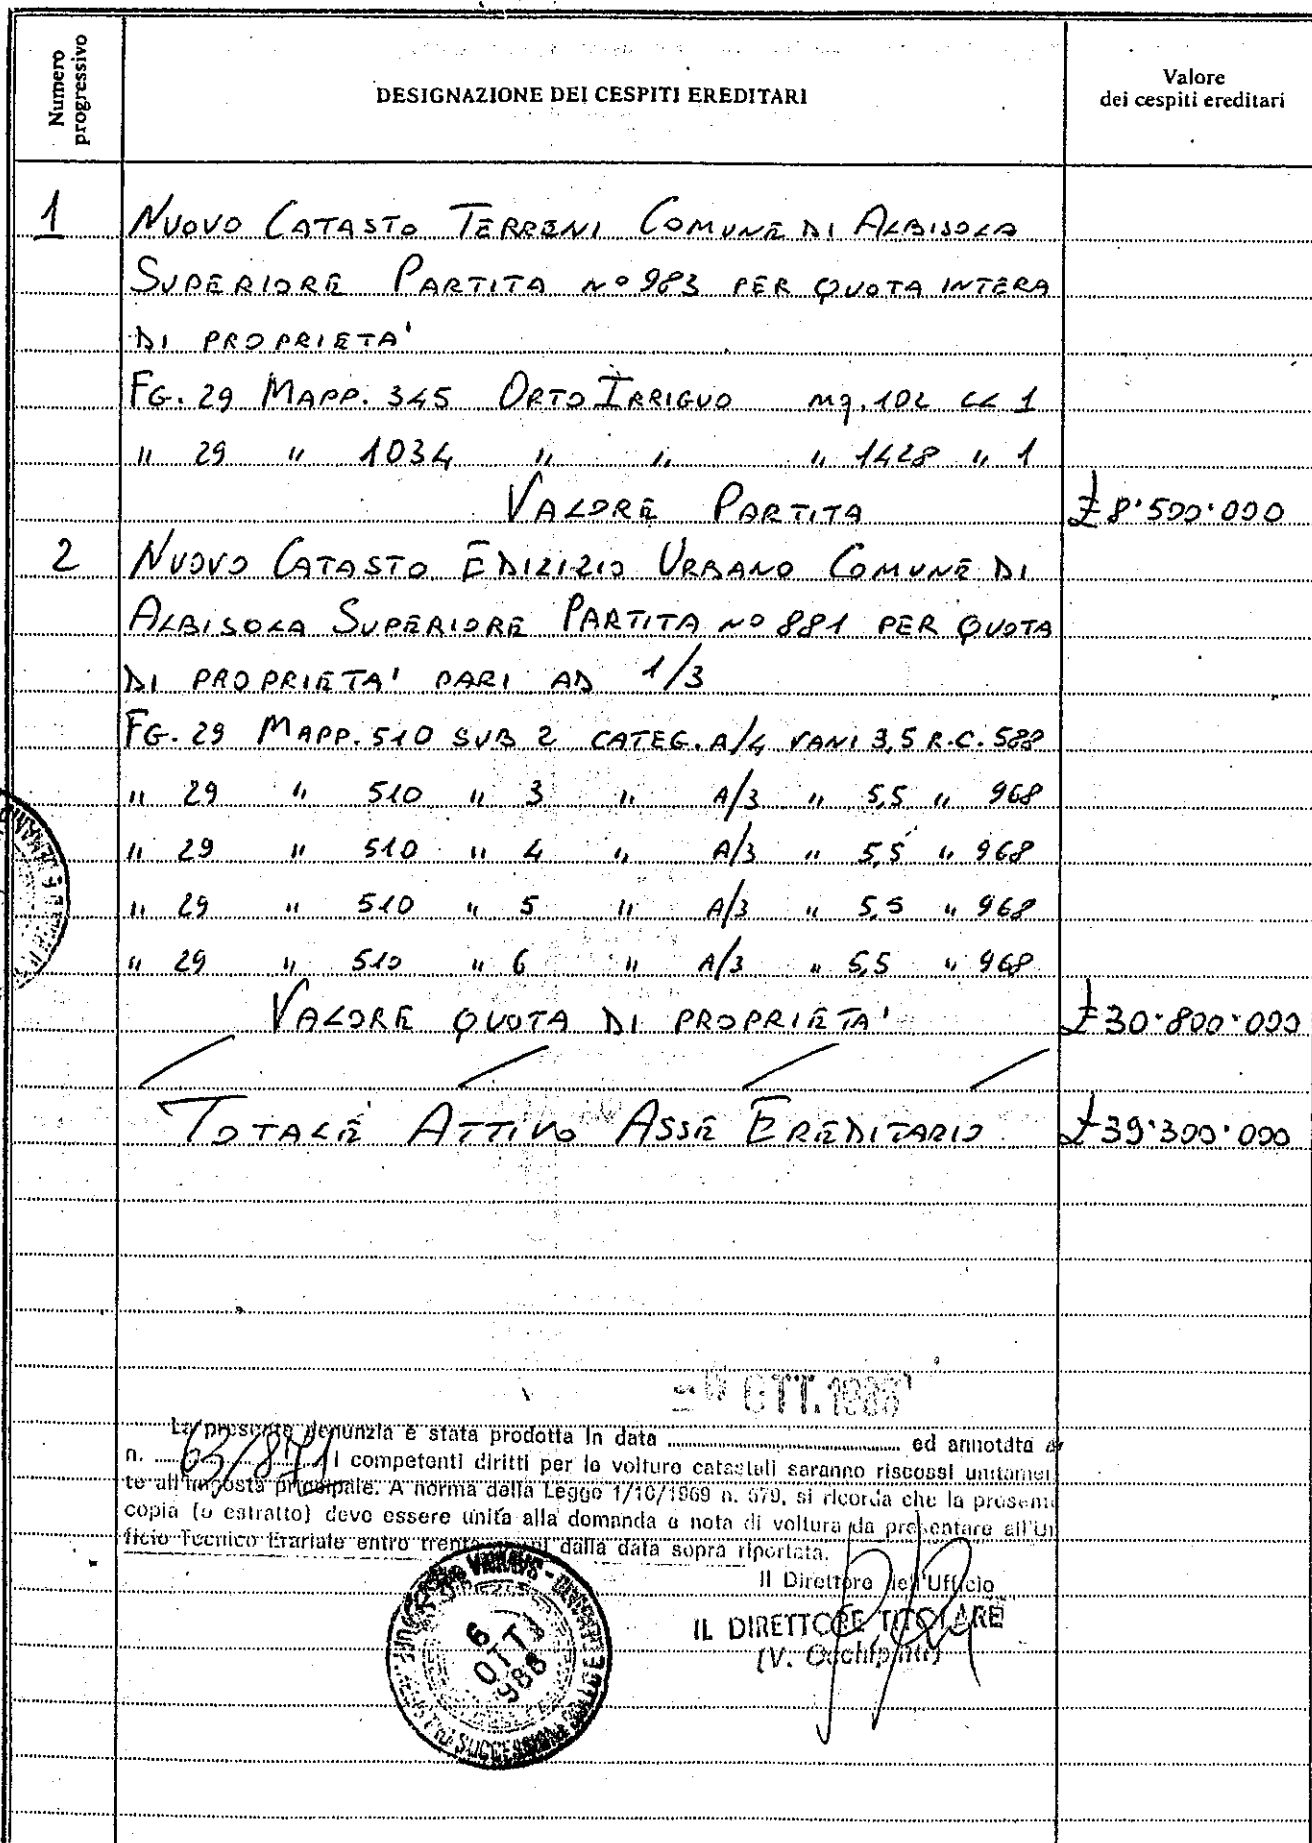 Numero progressivo
DESIGNAZIONE DEI CESPITI EREDITARI
Valore
dei cespiti ereditari
1 NUOVO CATASTO TERRENI COMUNE DI ALBISOLA
SUPERIORE PARTITA N° 983 PER QUOTA INTERA
DI PROPRIETA'
FG. 29 MAPP. 345 ORTO IRRIGUO mq. 102 CL 1
" 29 " 1034 " " " 1428 " 1
VALORE PARTITA £ 8'500'000
2 NUOVO CATASTO EDILIZIO URBANO COMUNE DI
ALBISOLA SUPERIORE PARTITA N° 881 PER QUOTA
DI PROPRIETA' PARI AD 1/3
FG. 29 MAPP. 510 SUB 2 CATEG. A/4 VANI 3,5 R.C. 588
" 29 " 510 " 3 " A/3 " 5,5 " 968
" 29 " 510 " 4 " A/3 " 5,5 " 968
" 29 " 510 " 5 " A/3 " 5,5 " 968
" 29 " 510 " 6 " A/3 " 5,5 " 968
VALORE QUOTA DI PROPRIETA' £ 30'800'000
TOTALE ATTIVO ASSE EREDITARIO £ 39'300'000
OTT. 1988
La presente denunzia è stata prodotta in data ed annotata al
n. 63/871 I competenti diritti per le volture catastali saranno riscossi unitamen
te all'imposta principale. A norma della Legge 1/10/1969 n. 679, si ricorda che la presente
copia (o estratto) deve essere unita alla domanda o nota di voltura da presentare all'Uf
ficio Tecnico Erariale entro trenta dalla data sopra riportata.
Il Direttore dell'Ufficio
IL DIRETTORE TITOLARE
(V. Occhipinti)
6
OTT
988
SUCCESSIONI